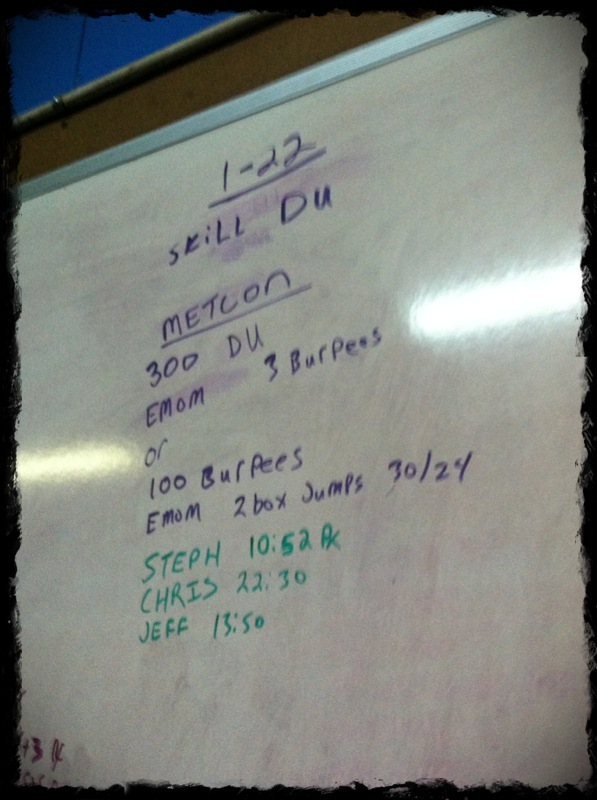 1-22
SKiLL DU
METCON
300 DU
EMOM 3 Burpees
or
100 Burpees
EMOM 2 box Jumps 30/24
STEPH 10:52 Rx
CHRIS 22:30
JEFF 13:50